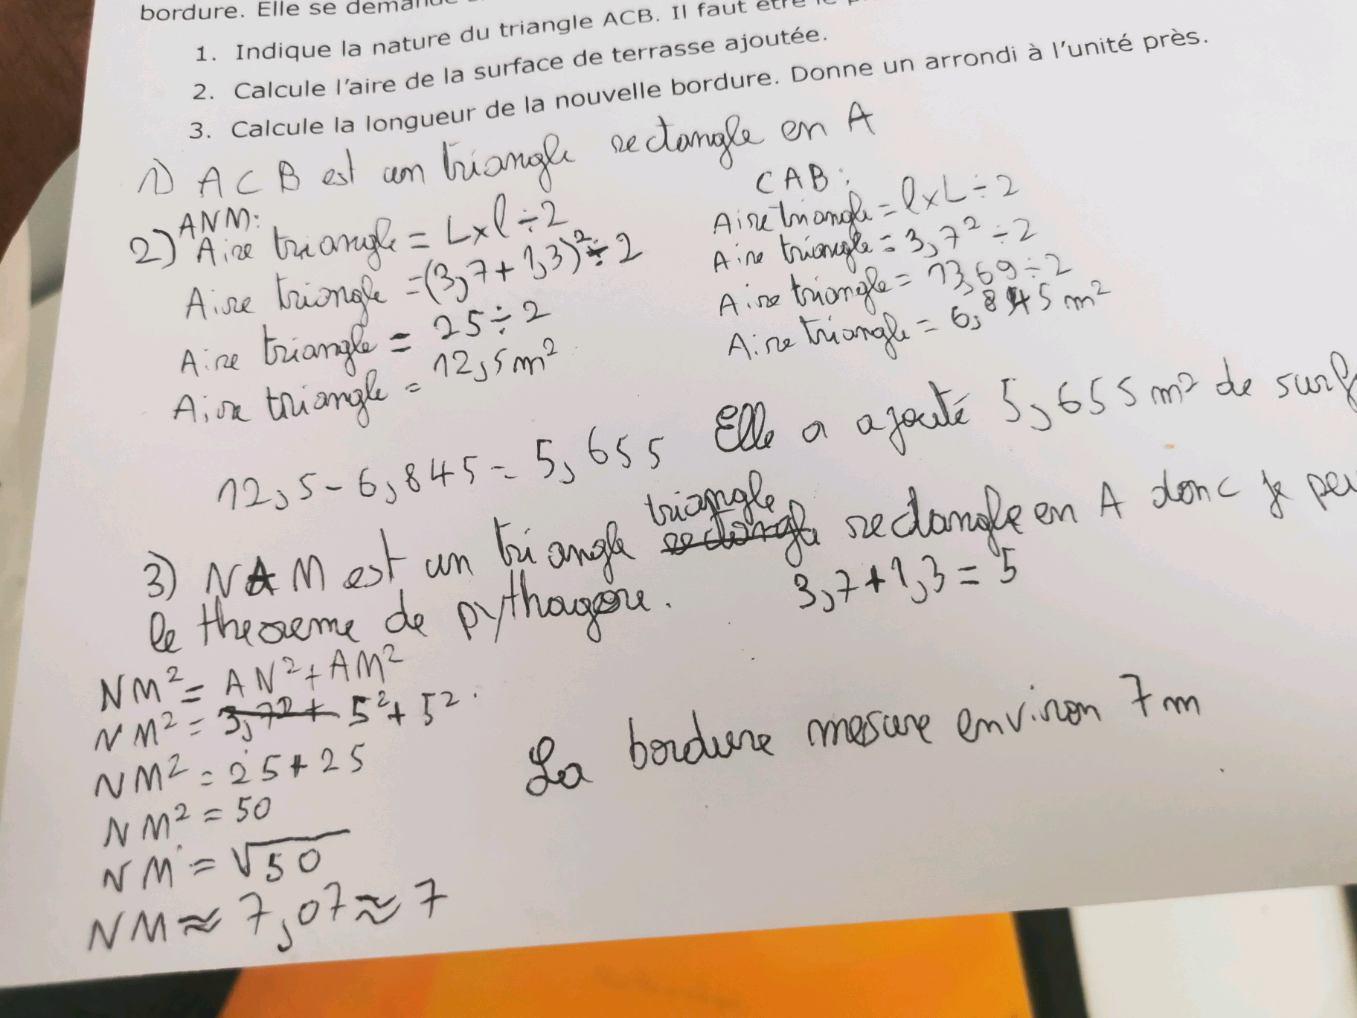 bordure. Elle se demand
1. Indique la nature du triangle ACB. Il faut être le
2. Calcule l'aire de la surface de terrasse ajoutée.
3. Calcule la longueur de la nouvelle bordure. Donne un arrondi à l'unité près.
1) ACB est un triangle rectangle en A
2) ANM:
Aire triangle = L×l÷2
Aire triangle =(3,7+1,3)²÷2
Aire triangle = 25÷2
Aire triangle = 12,5m²
CAB:
Aire triangle = l×L÷2
Aire triangle = 3,7²÷2
Aire triangle = 13,69÷2
Aire triangle = 6,845 m²
12,5-6,845 = 5,655 Elle a ajouté 5,655 m² de surf
3) NAM est un triangle triangle rectangle en A donc je peu
le theoreme de pythagore. 3,7+1,3=5
NM²= AN²+AM²
NM² = 3,7²+ 5²+5²
NM² = 25+25
NM² = 50
NM = √50
NM ≈ 7,07 ≈ 7
La bordure mesure environ 7m